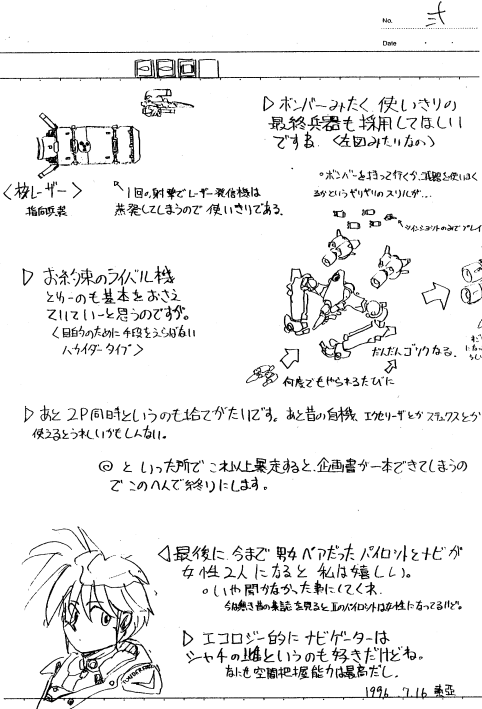 No. 弐
Date ・ ・
▷ ボンバーみたく 使いきりの
最終兵器も採用してほしい
ですね。〈左図みたいなの〉
〈核レーザー〉
指向兵装
1回の射撃でレーザー発信機は
蒸発してしまうので使いきりである。
○ボンバーを持って行くか、武器を使いまく
るかというギリギリのスリルが…
ツインショットのみでプレイ
▷ お約束のライバル機
とゆーのも基本をおさえ
ていていーと思うのですが。
〈目的のために手段をえらばない
ハウイダータイプ〉
だんだんゴツクなる。
何度でもやられるたびに
▷ あと 2P同時というのも捨てがたいです。あと昔の自機、エクセリーザとか スティクスとか
使えるとうれしいかもしんない。
◎ と いった所で これ以上暴走すると、企画書が一本できてしまうの
で このへんで終りにします。
◁ 最後に、今まで 男女ペアだった パイロットとナビが
女性2人になると 私は嬉しい。
○いや聞かなかった事にしてくれ
今徳きの昔の雑誌を見るとⅡのパイロットは女性になってるけど。
▷ エコロジー的に ナビゲーターは
シャチの雌というのも好きだけどね。
なにせ空間把握能力は最高だし。
1996. 7.16